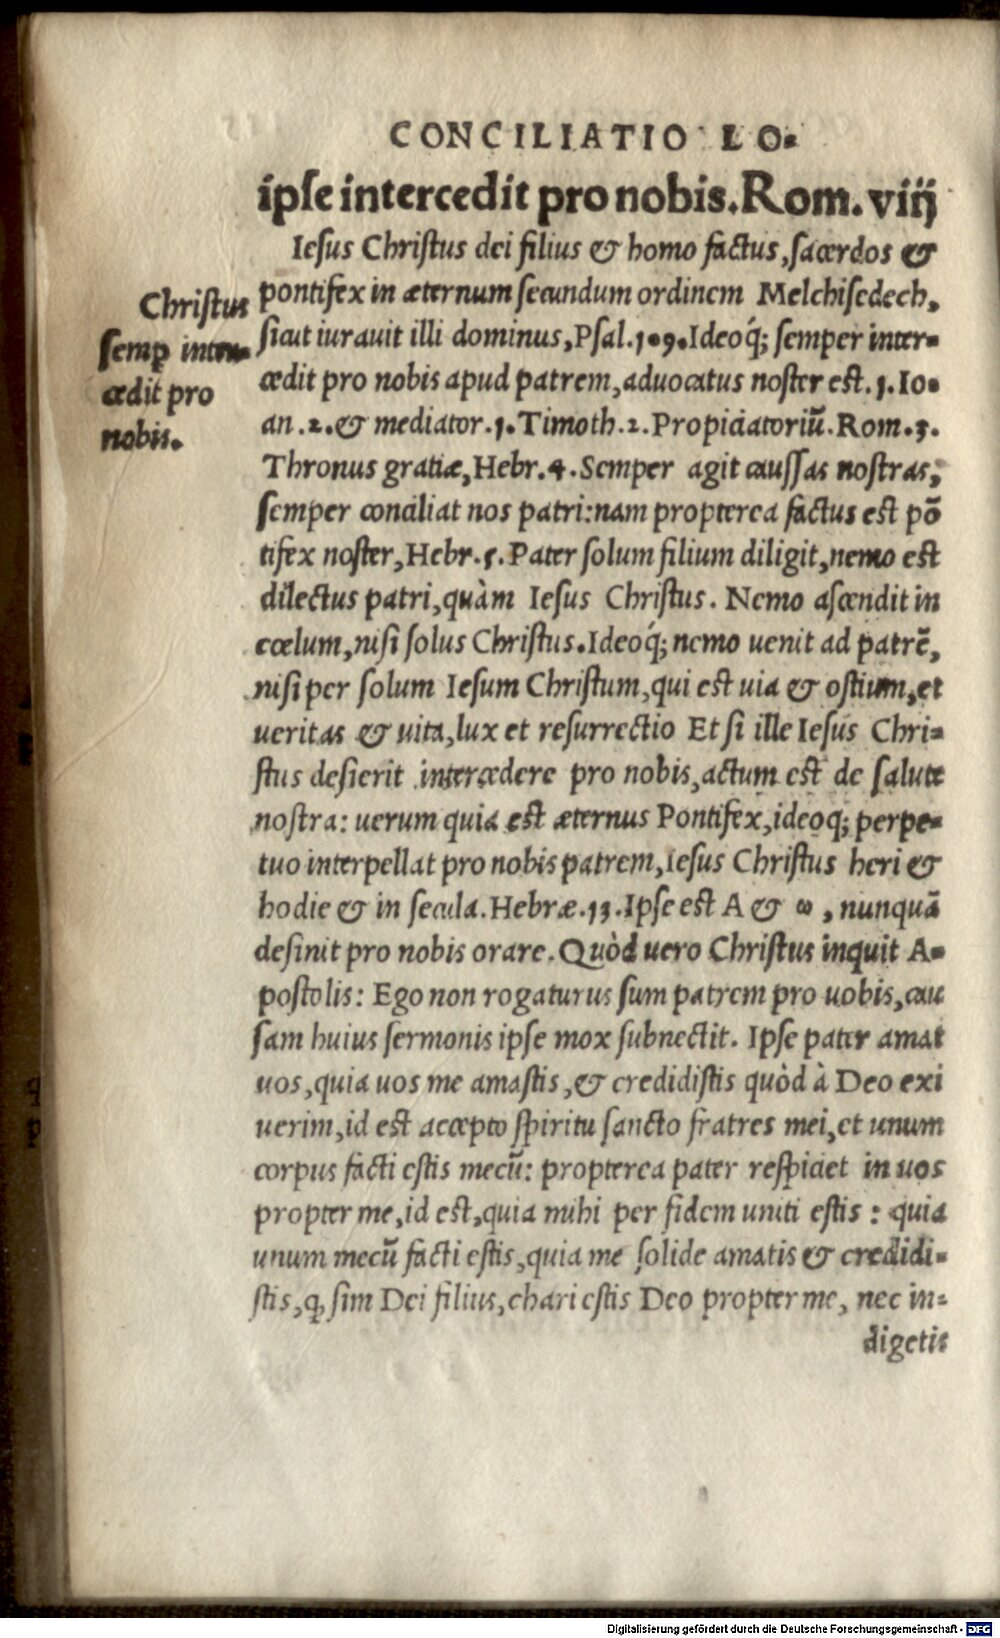 CONCILIATIO LO-
ipſe intercedit pro nobis. Rom. viij
Ieſus Chriſtus dei filius & homo factus, ſacerdos &
pontifex in æternum ſecundum ordinem Melchiſedech,
ſicut iurauit illi dominus, Pſal. 109. Ideoq́; ſemper inter-
cedit pro nobis apud patrem, aduocatus noſter eſt. 1. Io-
an. 2. & mediator. 1. Timoth. 2. Propiciatoriũ. Rom. 3.
Thronus gratiæ, Hebr. 4. Semper agit cauſſas noſtras,
ſemper conciliat nos patri: nam propterea factus eſt põ
tifex noſter, Hebr. 5. Pater ſolum filium diligit, nemo eſt
dilectus patri, quàm Ieſus Chriſtus. Nemo aſcendit in
cœlum, niſi ſolus Chriſtus. Ideoq́; nemo uenit ad patrẽ,
niſi per ſolum Ieſum Chriſtum, qui eſt uia & oſtium, et
ueritas & uita, lux et reſurrectio Et ſi ille Ieſus Chri-
ſtus deſierit intercedere pro nobis, actum eſt de ſalute
noſtra: uerum quia eſt æternus Pontifex, ideoq; perpe-
tuo interpellat pro nobis patrem, Ieſus Chriſtus heri &
hodie & in ſecula. Hebræ. 13. Ipſe eſt A & ω, nunquã
deſinit pro nobis orare. Quòd uero Chriſtus inquit A-
poſtolis: Ego non rogaturus ſum patrem pro uobis, cau
ſam huius ſermonis ipſe mox ſubnectit. Ipſe pater amat
uos, quia uos me amaſtis, & credidiſtis quòd à Deo exi
uerim, id eſt accepto ſpiritu ſancto fratres mei, et unum
corpus facti eſtis mecũ: propterea pater reſpiciet in uos
propter me, id eſt, quia mihi per fidem uniti eſtis: quia
unum mecũ facti eſtis, quia me ſolide amatis & credidi-
ſtis, ꝙ ſim Dei filius, chari eſtis Deo propter me, nec in-
digetis
Chriſtus
ſemꝑ inter-
cedit pro
nobis.
Digitalisierung gefördert durch die Deutsche Forschungsgemeinschaft - DFG